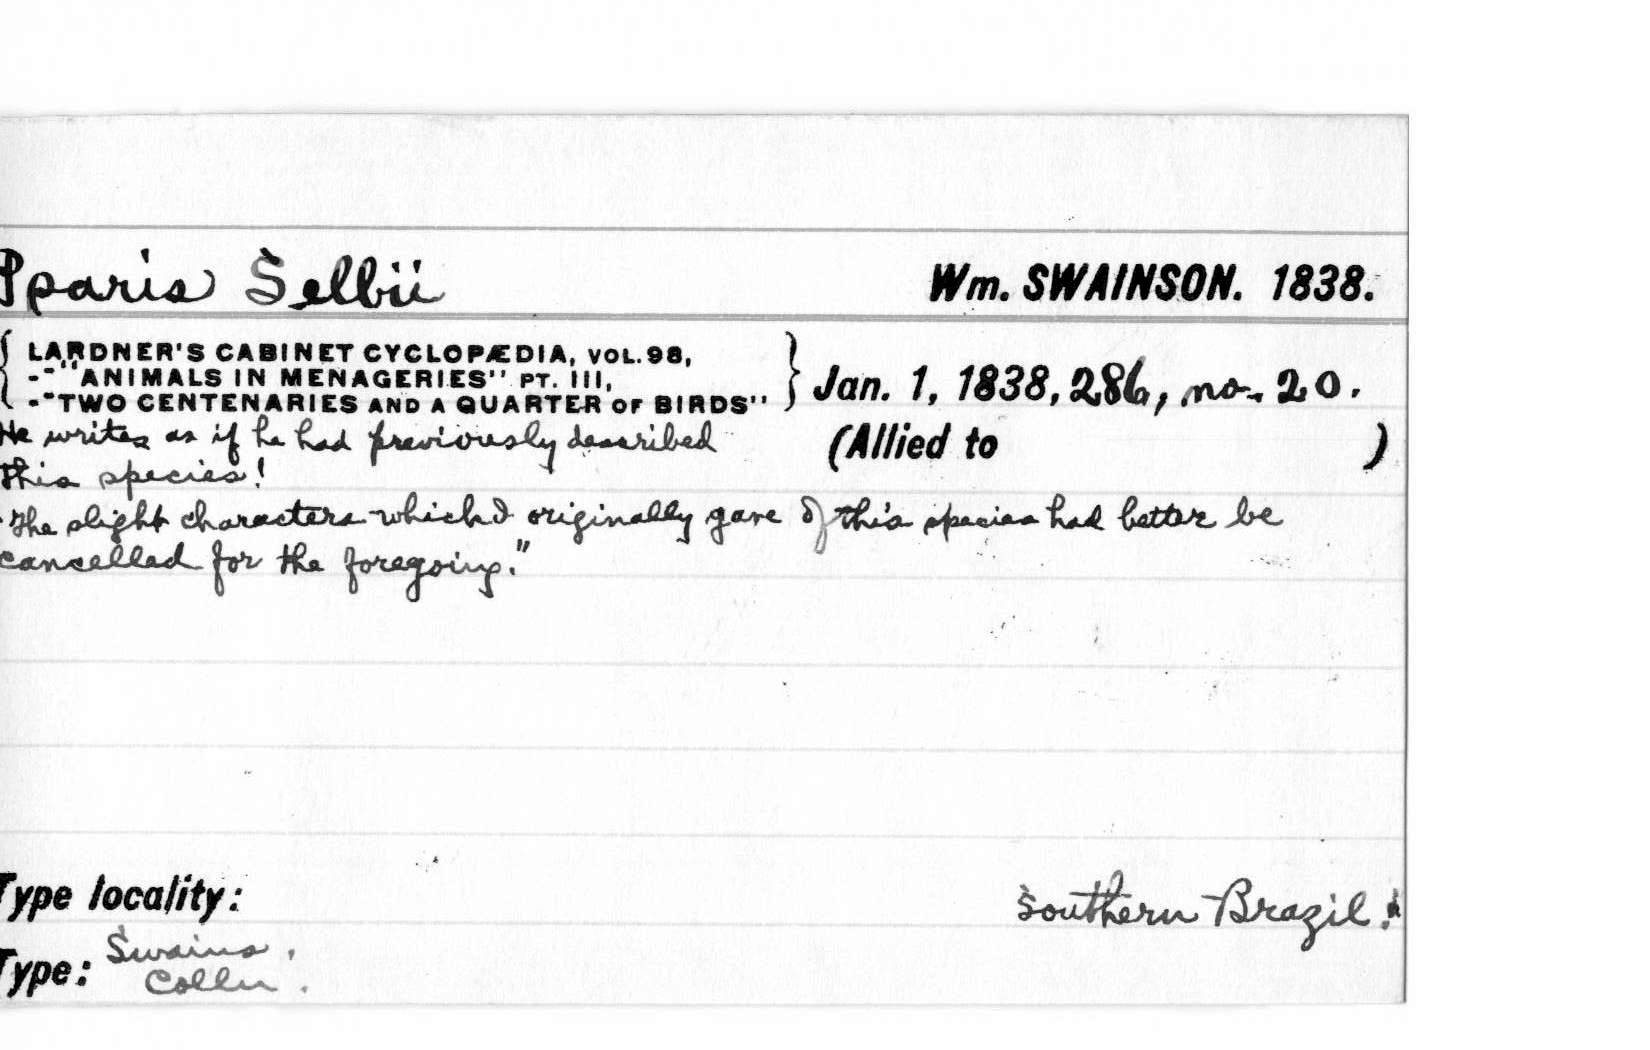 Sparis Selbii Wm. SWAINSON. 1838.
{ LARDNER'S CABINET CYCLOPÆDIA, VOL. 98,
-"ANIMALS IN MENAGERIES" PT. III, } Jan. 1, 1838, 286, no. 20.
-"TWO CENTENARIES AND A QUARTER OF BIRDS"
He writes as if he had previously described (Allied to )
this species!
"The slight characters which I originally gave of this species had better be
cancelled for the foregoing."
Type locality: Southern Brazil.
Type: Swains.
Colln.